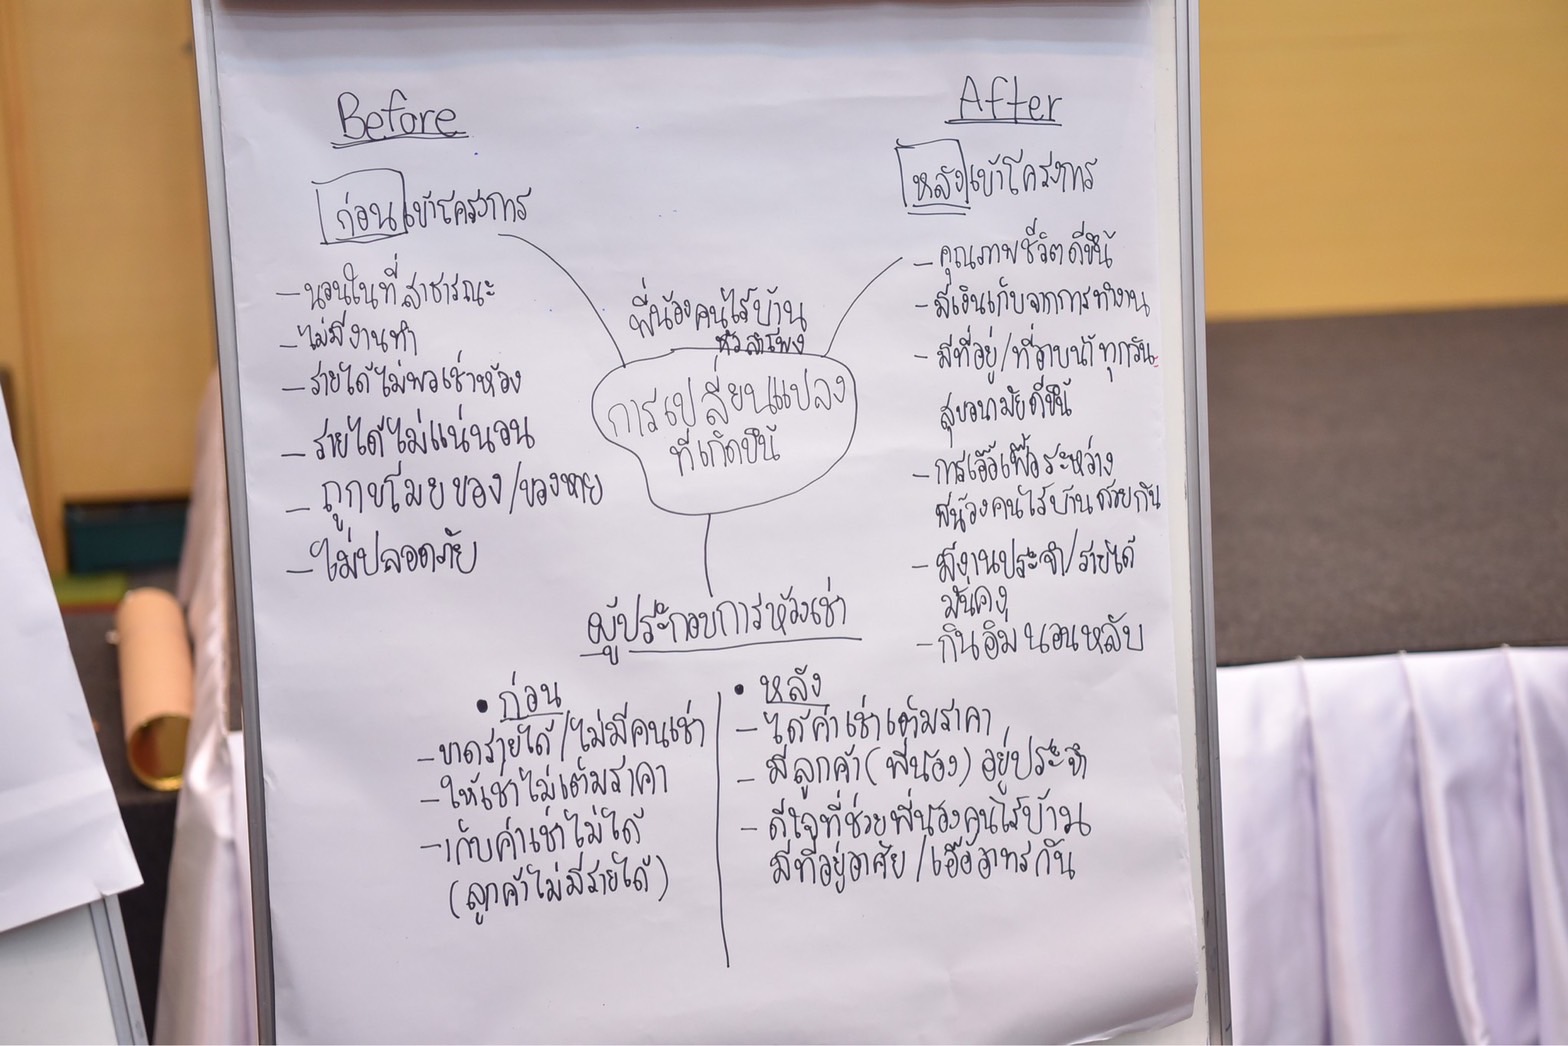 Before
ก่อนเข้าโครงการ
- นอนในที่สาธารณะ
- ไม่มีงานทำ
- รายได้ไม่พอเช่าห้อง
- รายได้ไม่แน่นอน
- ถูกขโมยของ/ของหาย
- ไม่ปลอดภัย
พี่น้องคนไร้บ้าน
หัวลำโพง
การเปลี่ยนแปลง
ที่เกิดขึ้น
After
หลังเข้าโครงการ
- คุณภาพชีวิตดีขึ้น
- มีเงินเก็บจากการทำงาน
- มีที่อยู่/ที่อาบน้ำทุกวัน
สุขอนามัยดีขึ้น
- การเอื้อเฟื้อระหว่าง
พี่น้องคนไร้บ้านด้วยกัน
- มีงานประจำ/รายได้
มั่นคง
- กินอิ่มนอนหลับ
ผู้ประกอบการห้องเช่า
• ก่อน
- ขาดรายได้/ไม่มีคนเช่า
- ให้เช่าไม่เต็มราคา
- เก็บค่าเช่าไม่ได้
(ลูกค้าไม่มีรายได้)
• หลัง
- ได้ค่าเช่าเต็มราคา
- มีลูกค้า(พี่น้อง)อยู่ประจำ
- ดีใจที่ช่วยพี่น้องคนไร้บ้าน
มีที่อยู่อาศัย/เอื้ออาทรกัน